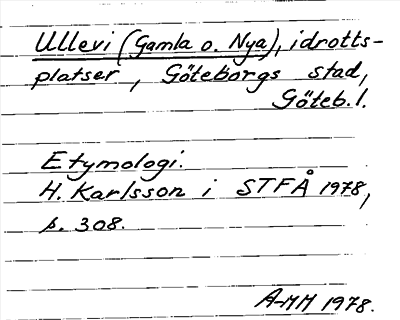 Ullevi (Gamla o. Nya), idrotts-
platser, Göteborgs stad,
Göteb. l.
Etymologi.
H. Karlsson i STFÅ 1978,
s. 308.
A-MM 1978.